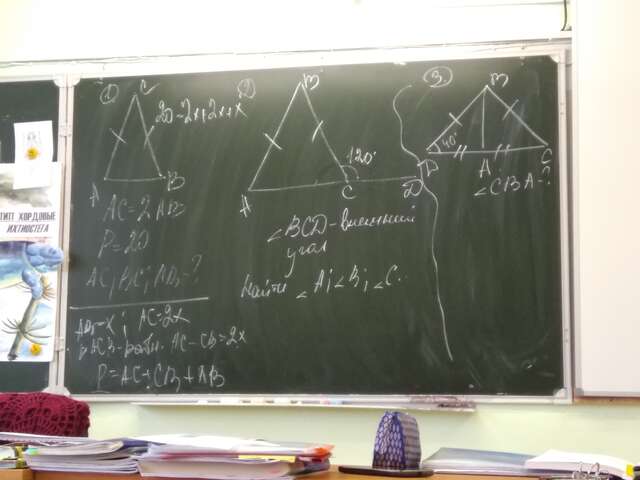 ТИП ХОРДОВЫЕ
ИХТИОСТЕГА
1
C
20 = 2x+2x+x
A
B
AC = 2AB
P = 20
AC; BC; AB - ?
AB - x; AC = 2x
ACB - равн. AC = CB = 2x
P = AC + CB + AB
2
B
120°
A
C
D
∠BCD - внешний
угол
Найти ∠A; ∠B; ∠C.
3.
B
40°
D
A
C
∠CBA - ?